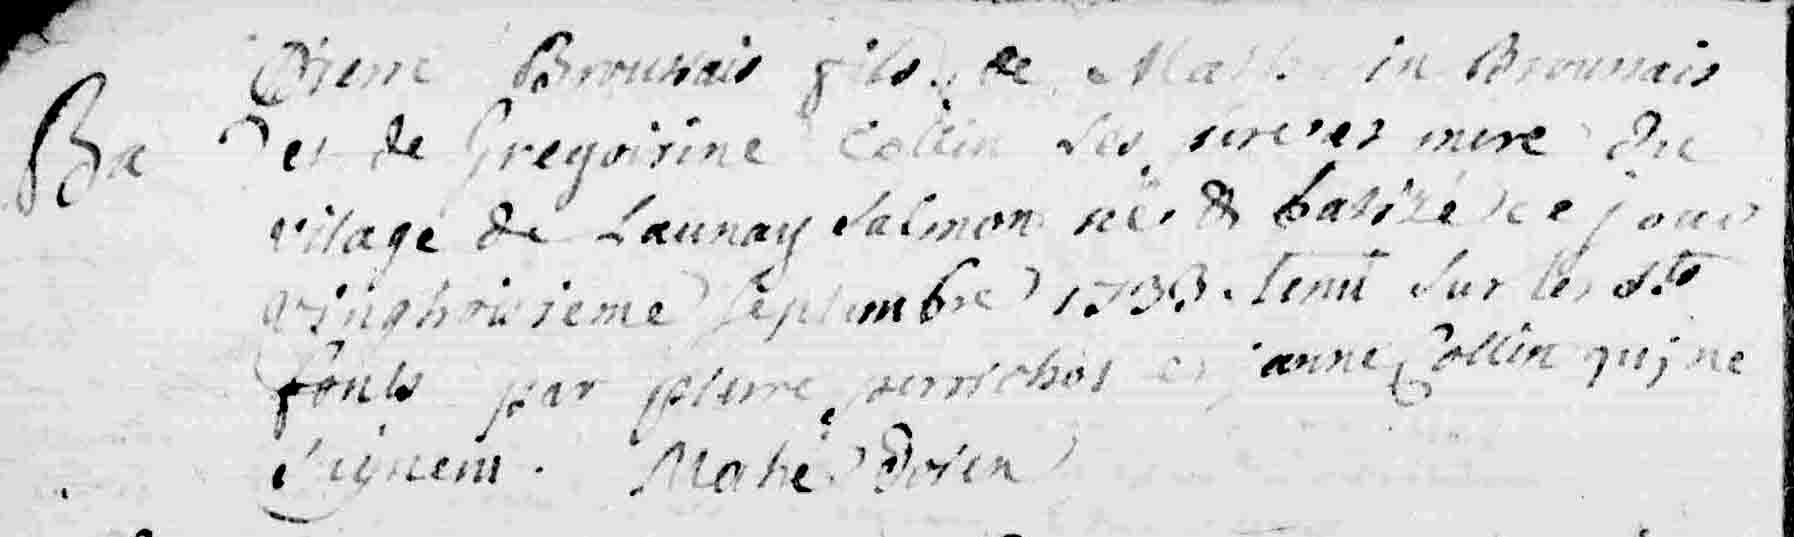 Pierre Broussais fils de Mathurin Broussais
Ba et de Gregoirine Collin ses pere et mere du
vilage de Launay Salmon né & batizé ce jour
vinghroisieme septembre 1733. tenu sur les sts
fonts par pierre perrichot et janne Collin qui ne
signent. Mahé Doien